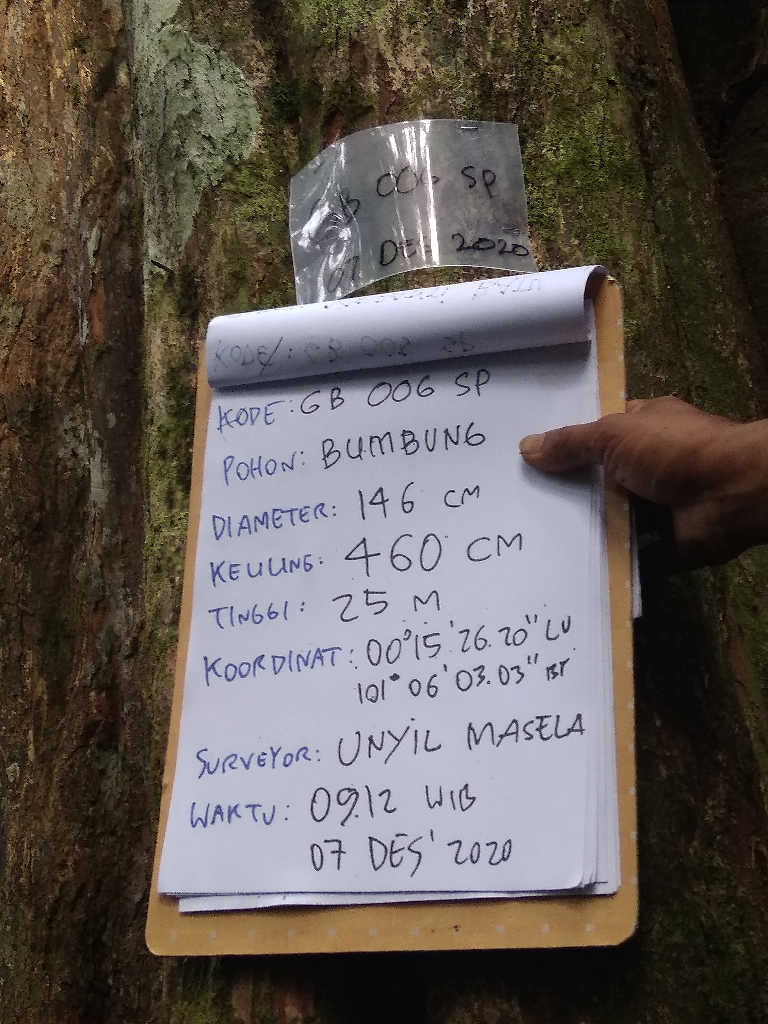 GB 006 SP
07 DES 2020
KODE: GB 006 SP
POHON: BUMBUNG
DIAMETER: 146 CM
KELILING: 460 CM
TINGGI: 25 M
KOORDINAT: 00°15'26.20" LU
101° 06' 03.03" BT
SURVEYOR: UNYIL MASELA
WAKTU: 09.12 WIB
07 DES' 2020